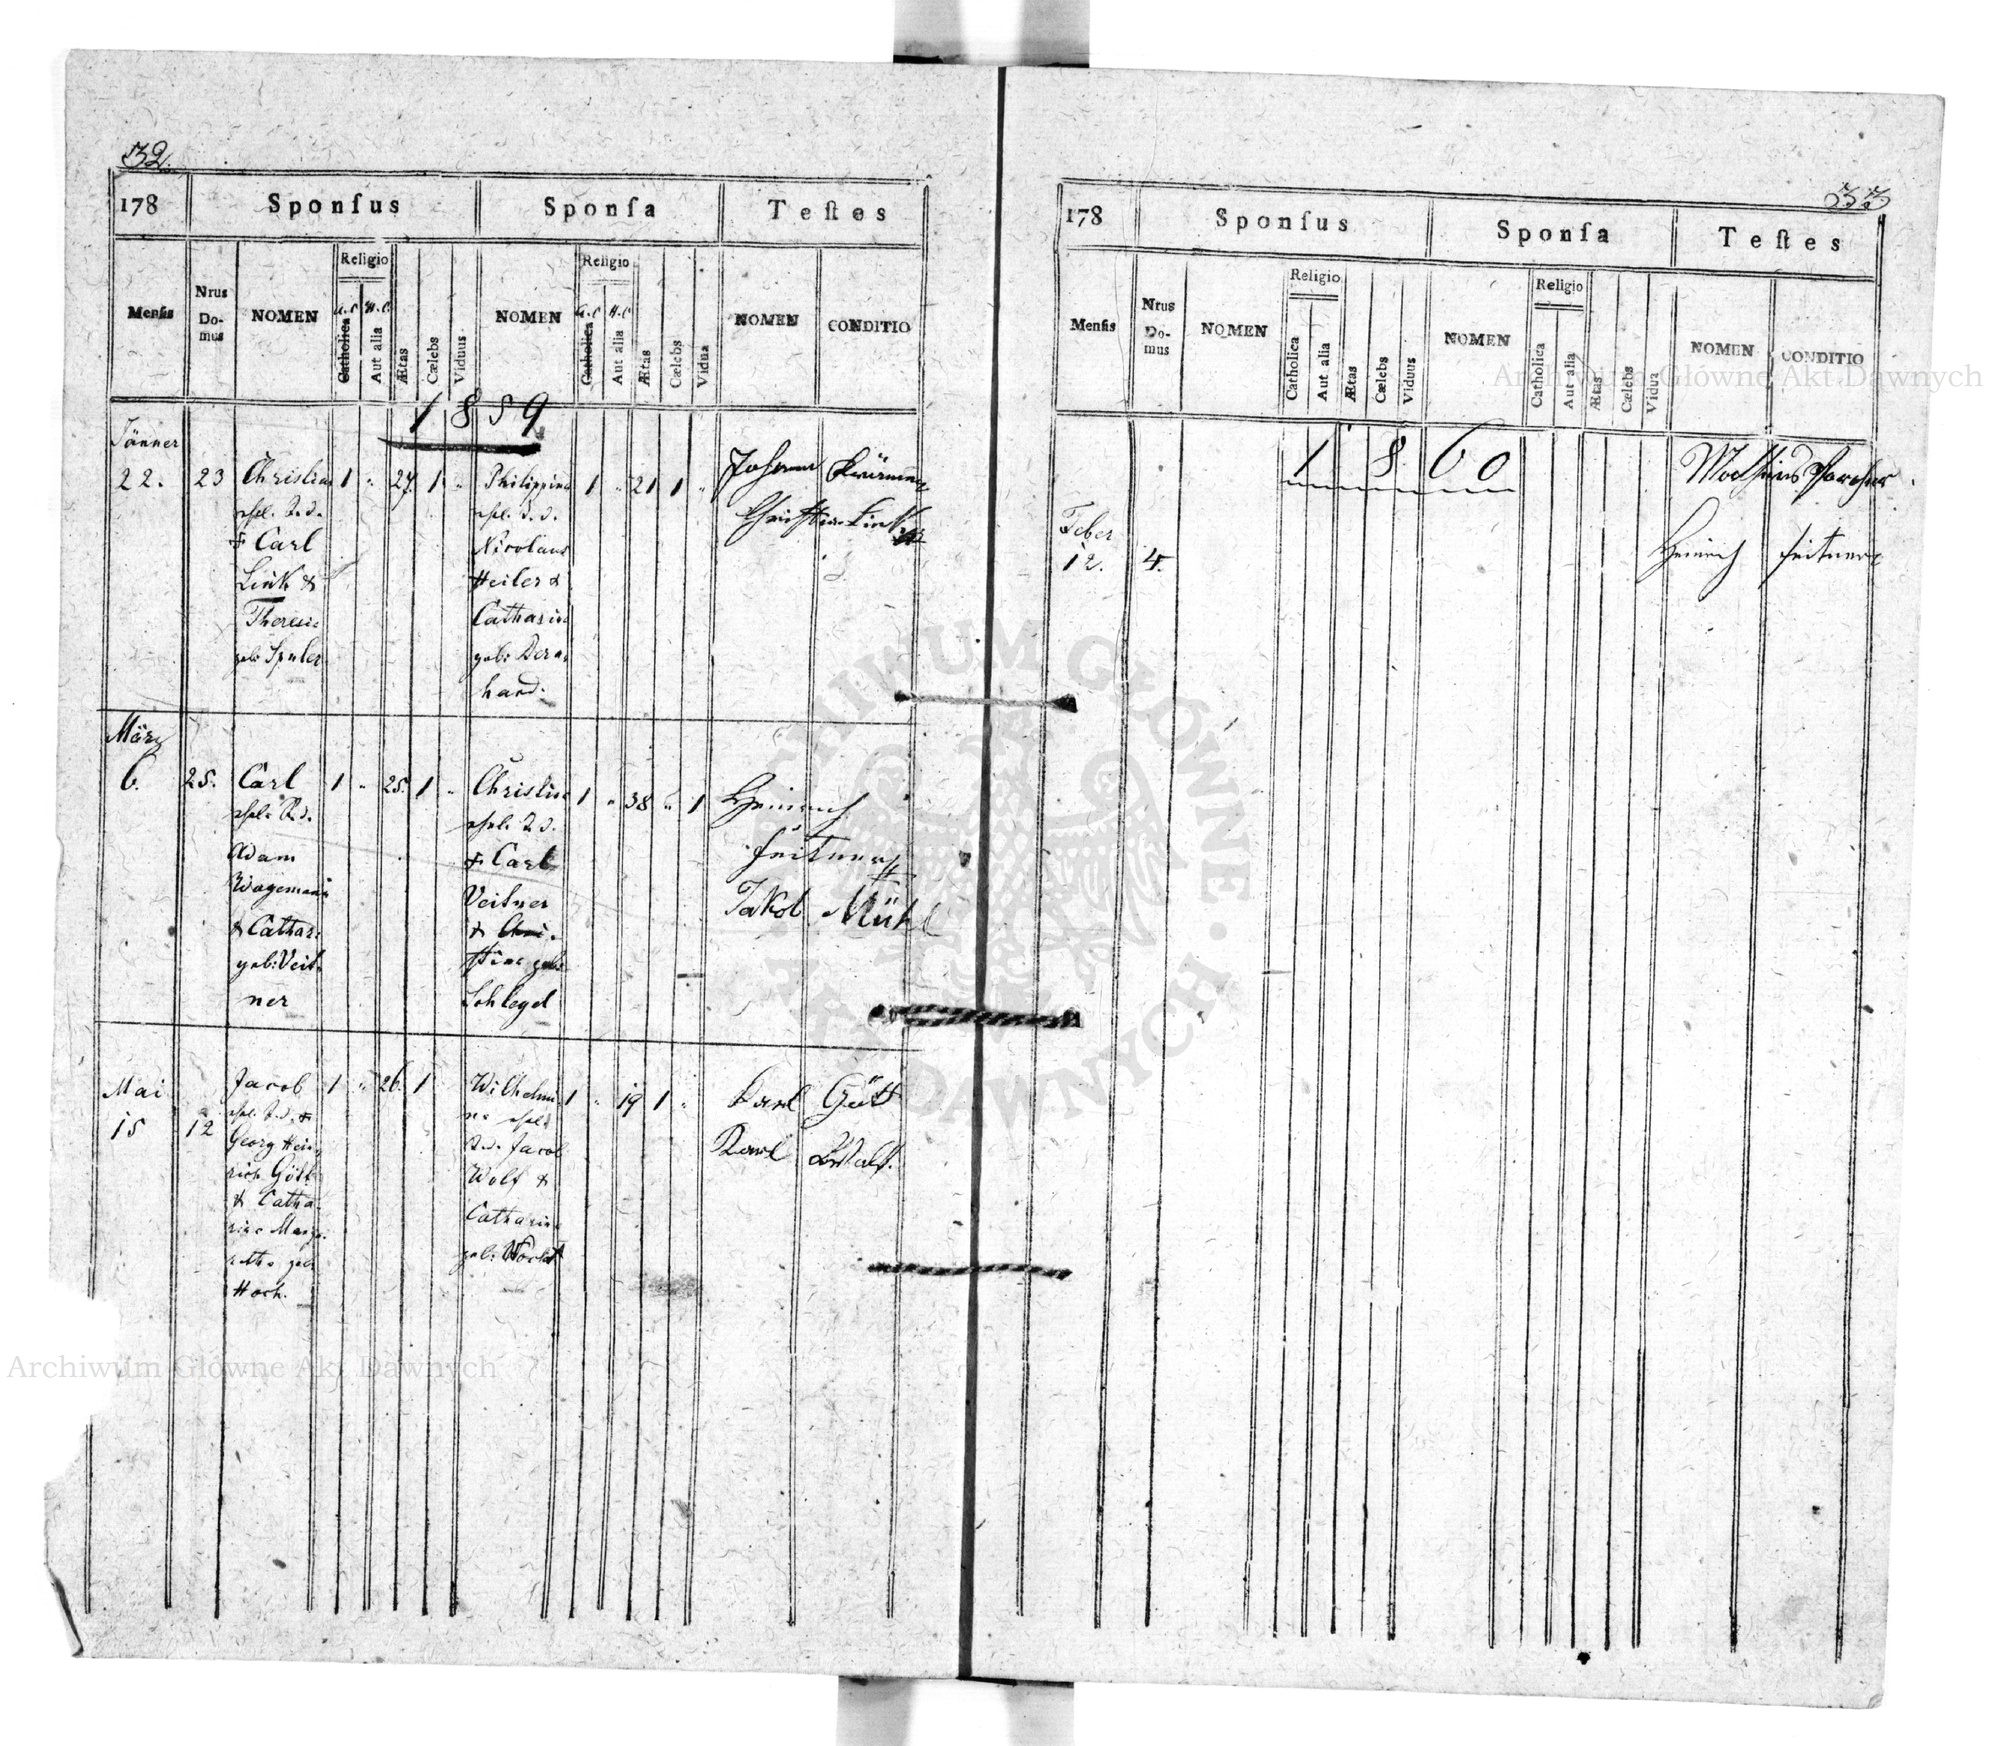 32.
178
Sponſus
Sponſa
Teſtes
Menſis
Nrus Domus
NOMEN
Religio
A.C.
Catholica
H.C.
Aut alia
Ætas
Cælebs
Viduus
NOMEN
Religio
A.C.
Catholica
H.C.
Aut alia
Ætas
Cælebs
Vidua
NOMEN
CONDITIO
1859
Jänner
22.
23
Christian
ehel. S. d.
† Carl
Link &
Theresia
geb: Spuler
1 " 27. 1 "
Philippina
ehel. T. d.
Nicolaus
Heiler &
Catharina
geb: Bern-
hard.
1 " 21 1 "
Johann
Christian Link
März
6.
25.
Carl
ehel. S. d.
Adam
Wagemann
& Cathar.
geb: Veit-
ner
1 " 25. 1 "
Christine
ehel. T. d.
† Carl
Veitner
& Chri-
stine geb:
Schlegel
1 " 38 " 1
Heinrich
Feitner
Jakob Mühl
Mai
15
12
Jacob
ehel. S. d. †
Georg Hein-
rich Gött
& Catha-
rina Marga-
retha geb:
Hoch.
1 " 26. 1
Wilhelmi-
ne ehel.
T. d. Jacob
Wolf &
Catharina
geb:
1 " 19 1 "
Karl Gött
Karl Wolf.
33
178
Sponſus
Sponſa
Teſtes
Menſis
Nrus Domus
NOMEN
Religio
Catholica
Aut alia
Ætas
Cælebs
Viduus
NOMEN
Religio
Catholica
Aut alia
Ætas
Cælebs
Vidua
NOMEN
CONDITIO
1860
Feber
12.
4.
Mathias
Heinrich Feitner
Archiwum Główne Akt Dawnych
Archiwum Główne Akt Dawnych
ARCHIWUM GŁÓWNE · AKT DAWNYCH ·